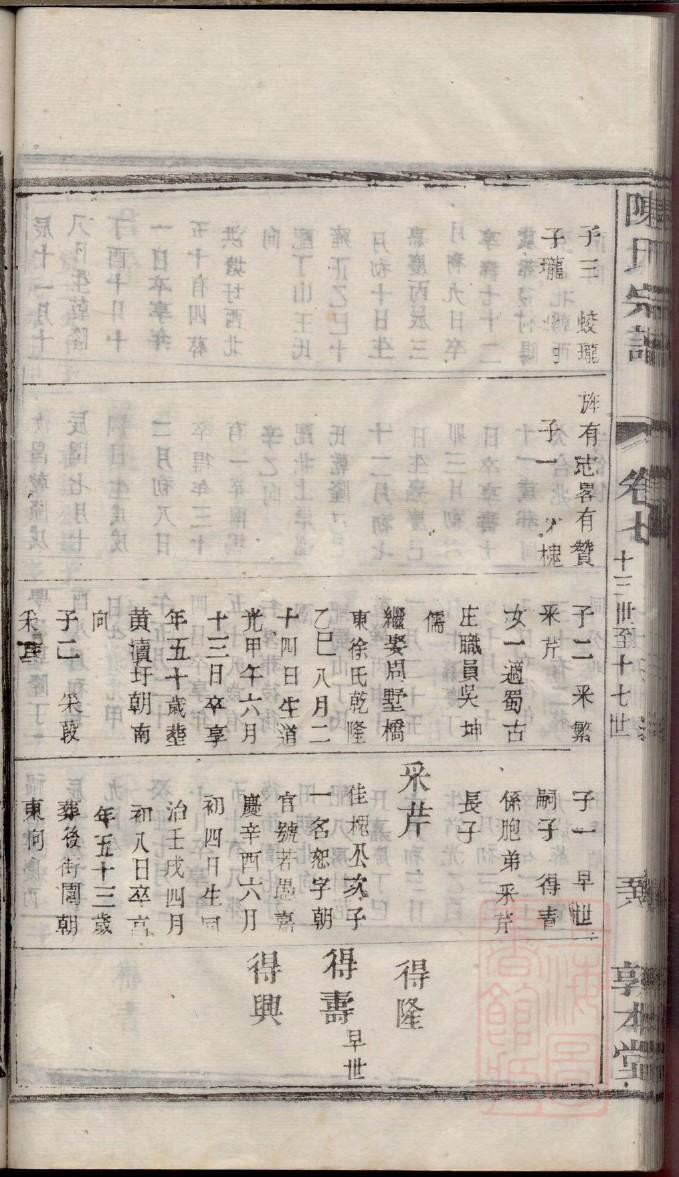 陳氏宗譜
卷七
十三世至十七世
敦本堂
子三 蛟瓏
子瓏
旌有志畧有贊
子一 槐
子二 采繁
采芹
女一適蜀古
庄職員吳坤
儒
繼娶周墅橋
東徐氏乾隆
乙巳八月二
十四日生道
光甲午六月
十三日卒享
年五十歲塟
黃瀆圩朝南
向
子二 采葑
采
子一 早世
嗣子 得青
係胞弟采芹
長子
采芹
佳槐公次子
一名恕字朝
官號若愚嘉
慶辛酉六月
初四日生同
治壬戌四月
初八日卒享
年五十三歲
葬後街閣朝
東向
得隆
得壽 早世
得興